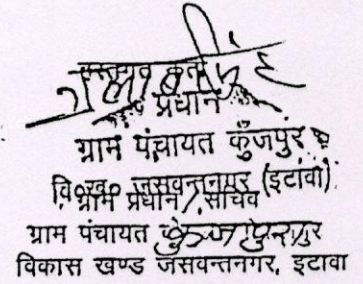 प्रधान
ग्राम पंचायत कुँजपुर
वि०ख० जसवन्तनगर (इटावा)
ग्राम प्रधान / सचिव
ग्राम पंचायत कुंजपुरपुर
विकास खण्ड जसवन्तनगर, इटावा